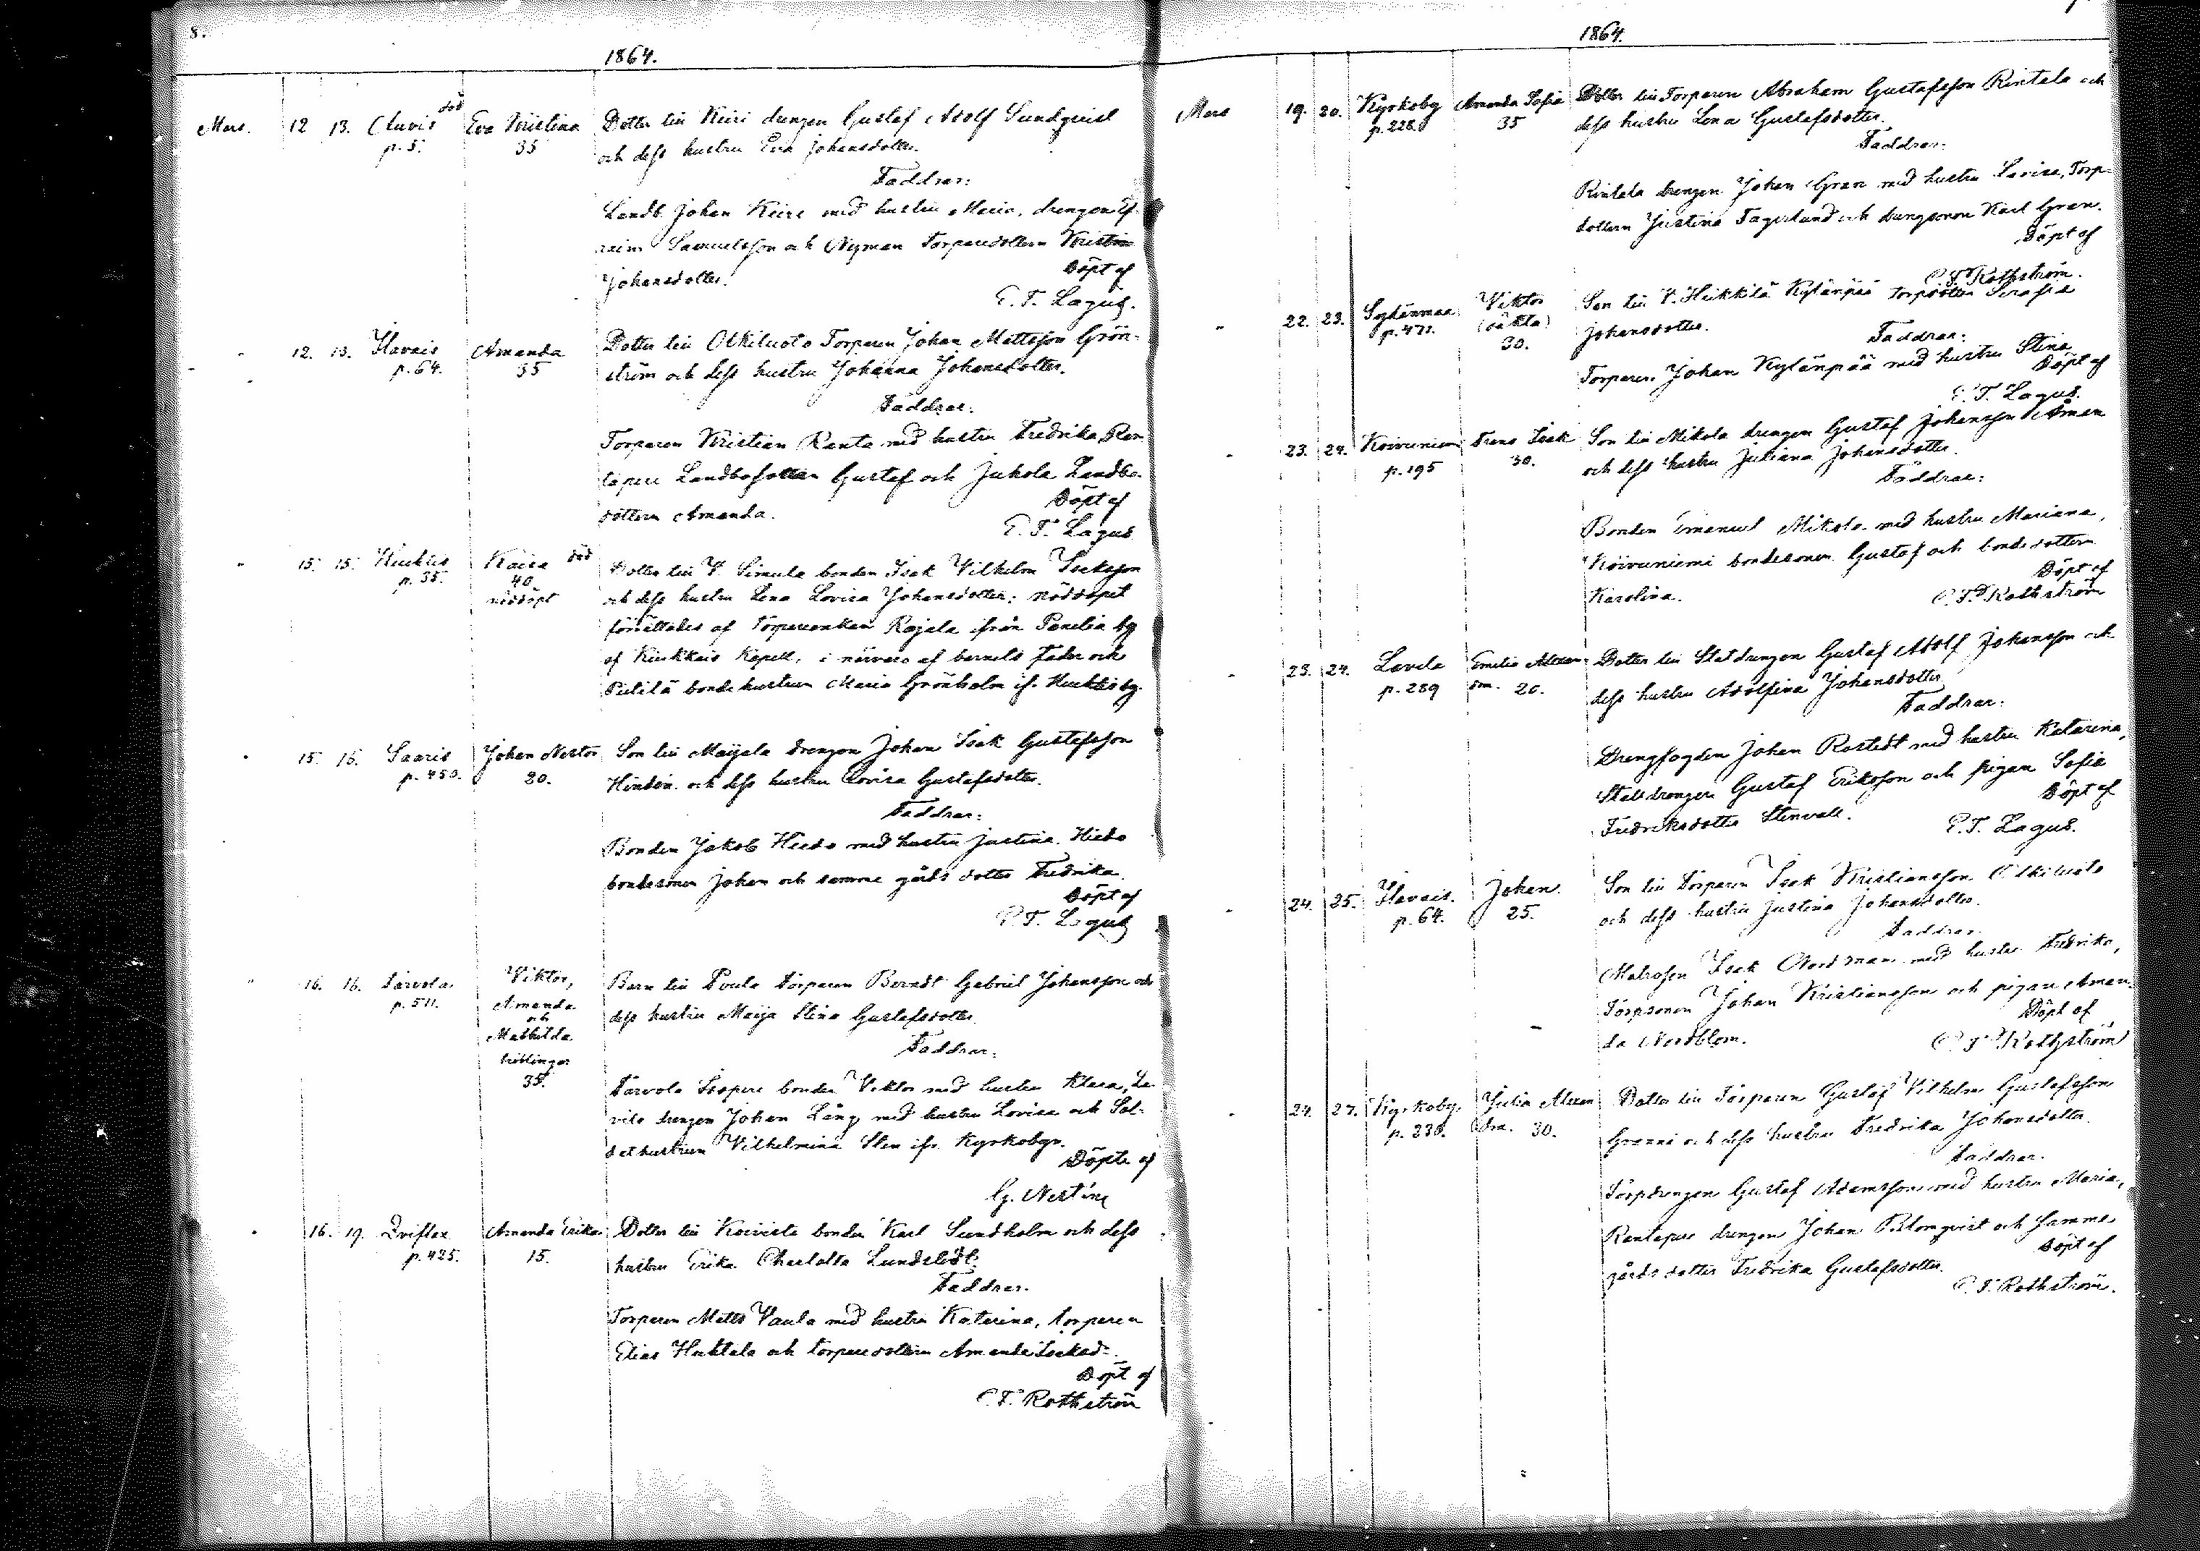 8.
1864.
Mars. 12 13. Cluvis död Eva Kristina Dotter till Kiiri drengen Gustaf Adolf Sundqvist
p. 5. 35 och dess hustru Eva Johansdotter.
Faddrar:
Landb. Johan Kiiri med hustru Maria, drengen Ef-
raim Samuelsson och Nyman Torparedottern Kristina
Johansdotter. Döpt af
E. T. Lagus.
" 12. 13. Ilavais Amanda Dotter till Olkiluoto Torparen Johan Mattsson Grön-
p. 64. 35 ström och dess hustru Johanna Johansdotter.
Faddrar:
Torparen Kristian Ranta med hustru Fredrika, Ran-
tapere Landbosonen Gustaf och Juhola Landbo-
dottern Amanda. Döpt af
E. T. Lagus
" 15. 15. Huckis Kaisa död Dotter till V. Simula bonden Isak Vilhelm Isaksson
p. 35. 40. och dess hustru Lena Lovisa Johansdotter; nöddopet
nöddöpt förättades af Torpareenkan Rajala ifrån Panelia by
af Kiukkais Kapell, i närvaro af barnets fader och
Pietilä bondehustrun Maria Grönholm ifr. Huckis by.
" 15. 16. Saaris Johan Nestor Son till Maijala drengen Johan Isak Gustafsson
p. 450. 30. Hinden och dess hustru Lovisa Gustafsdotter.
Faddrar:
Bonden Jakob Hiedo med hustru Justina, Hiedo
bondesonen Johan och samma gårds dotter Fredrika.
Döpt af
E. T. Lagus
" 16. 16. Tarvola Viktor, Barn till Pouls torparen Berndt Gabriel Johansson och
p. 511. Amanda dess hustru Maija Stina Gustafsdotter.
och
Mathilda Faddrar:
trillingar
35. Tarvola Isopere bonden Viktor med hustru Klara, La-
vila drengen Johan Lång med hustru Lovisa och Sol-
dathustrun Vilhelmina Sten ifr. Kyrkobyn.
Döpte af
G. Nestine
" 16. 19. Qviflax Amanda Erika Dotter till Koivisto bonden Karl Sundholm och dess
p. 425. 15. hustru Erika Charlotta Lundstedt.
Faddrar.
Torparen Matts Vaula med hustru Katarina, torparen
Elias Huhtala och torparedottern Amanda Isaksd:
Döpt af
C. F. Rothström
1864.
Mars 19. 20. Kyrkoby Amanda Sofia Dotter till Torparen Abraham Gustafsson Rintala och
p. 228. 35 dess hustru Lena Gustafsdotter.
Faddrar:
Rintala drengen Johan Gran med hustru Lovisa, Torp-
dottern Justina Fagerlund och drengsonen Karl Gran.
Döpt af
C. F. Rothström.
" 22. 23. Sydänmaa Viktor Son till V. Heikkilä Kylänpää torpdotter Serafia
p. 471. (oäkta) Johansdotter.
30. Faddrar:
Torparen Johan Kylänpää med hustru Stina
Döpt af
E. T. Lagus.
" 23. 24. Koivuniemi Frans Isak Son till Mikola drengen Gustaf Johansson Åman
p. 195 30. och dess hustru Juliana Johansdotter.
Faddrar:
Bonden Emanuel Mikola med hustru Mariana,
Koivuniemi bondesonen Gustaf och bondedottern
Karolina. Döpt af
C. F. Rothström
" 23. 24. Lavila Emilia Alexan- Dotter till Statdrengen Gustaf Adolf Johansson och
p. 289 dra. 20. dess hustru Adolfina Johansdotter
Faddrar:
Drengfogden Johan Rostedt med hustru Katarina,
Stalldrengen Gustaf Eriksson och pigan Sofia
Fredriksdotter Stenvall. Döpt af
E. T. Lagus.
" 24. 25. Ilavais. Johan. Son till Torparen Isak Kristiansson Olkiluoto
p. 64. 25. och dess hustru Justina Johansdotter.
Faddrar.
Matrosen Isak Nordman med hustru Fredrika,
Torpsonen Johan Kristiansson och pigan Aman-
da Nordblom. Döpt af
C. F. Rothström
" 24. 27. Kyrkoby. Julia Alexan- Dotter till Torparen Gustaf Vilhelm Gustafsson
p. 230. dra. 30. Granni och dess hustru Fredrika Johansdotter.
Faddrar.
Torpdrengen Gustaf Adamsson med hustru Maria,
Rantapere drengen Johan Blomqvist och samma
gårds dotter Fredrika Gustafsdotter. Döpt af
C. F. Rothström.